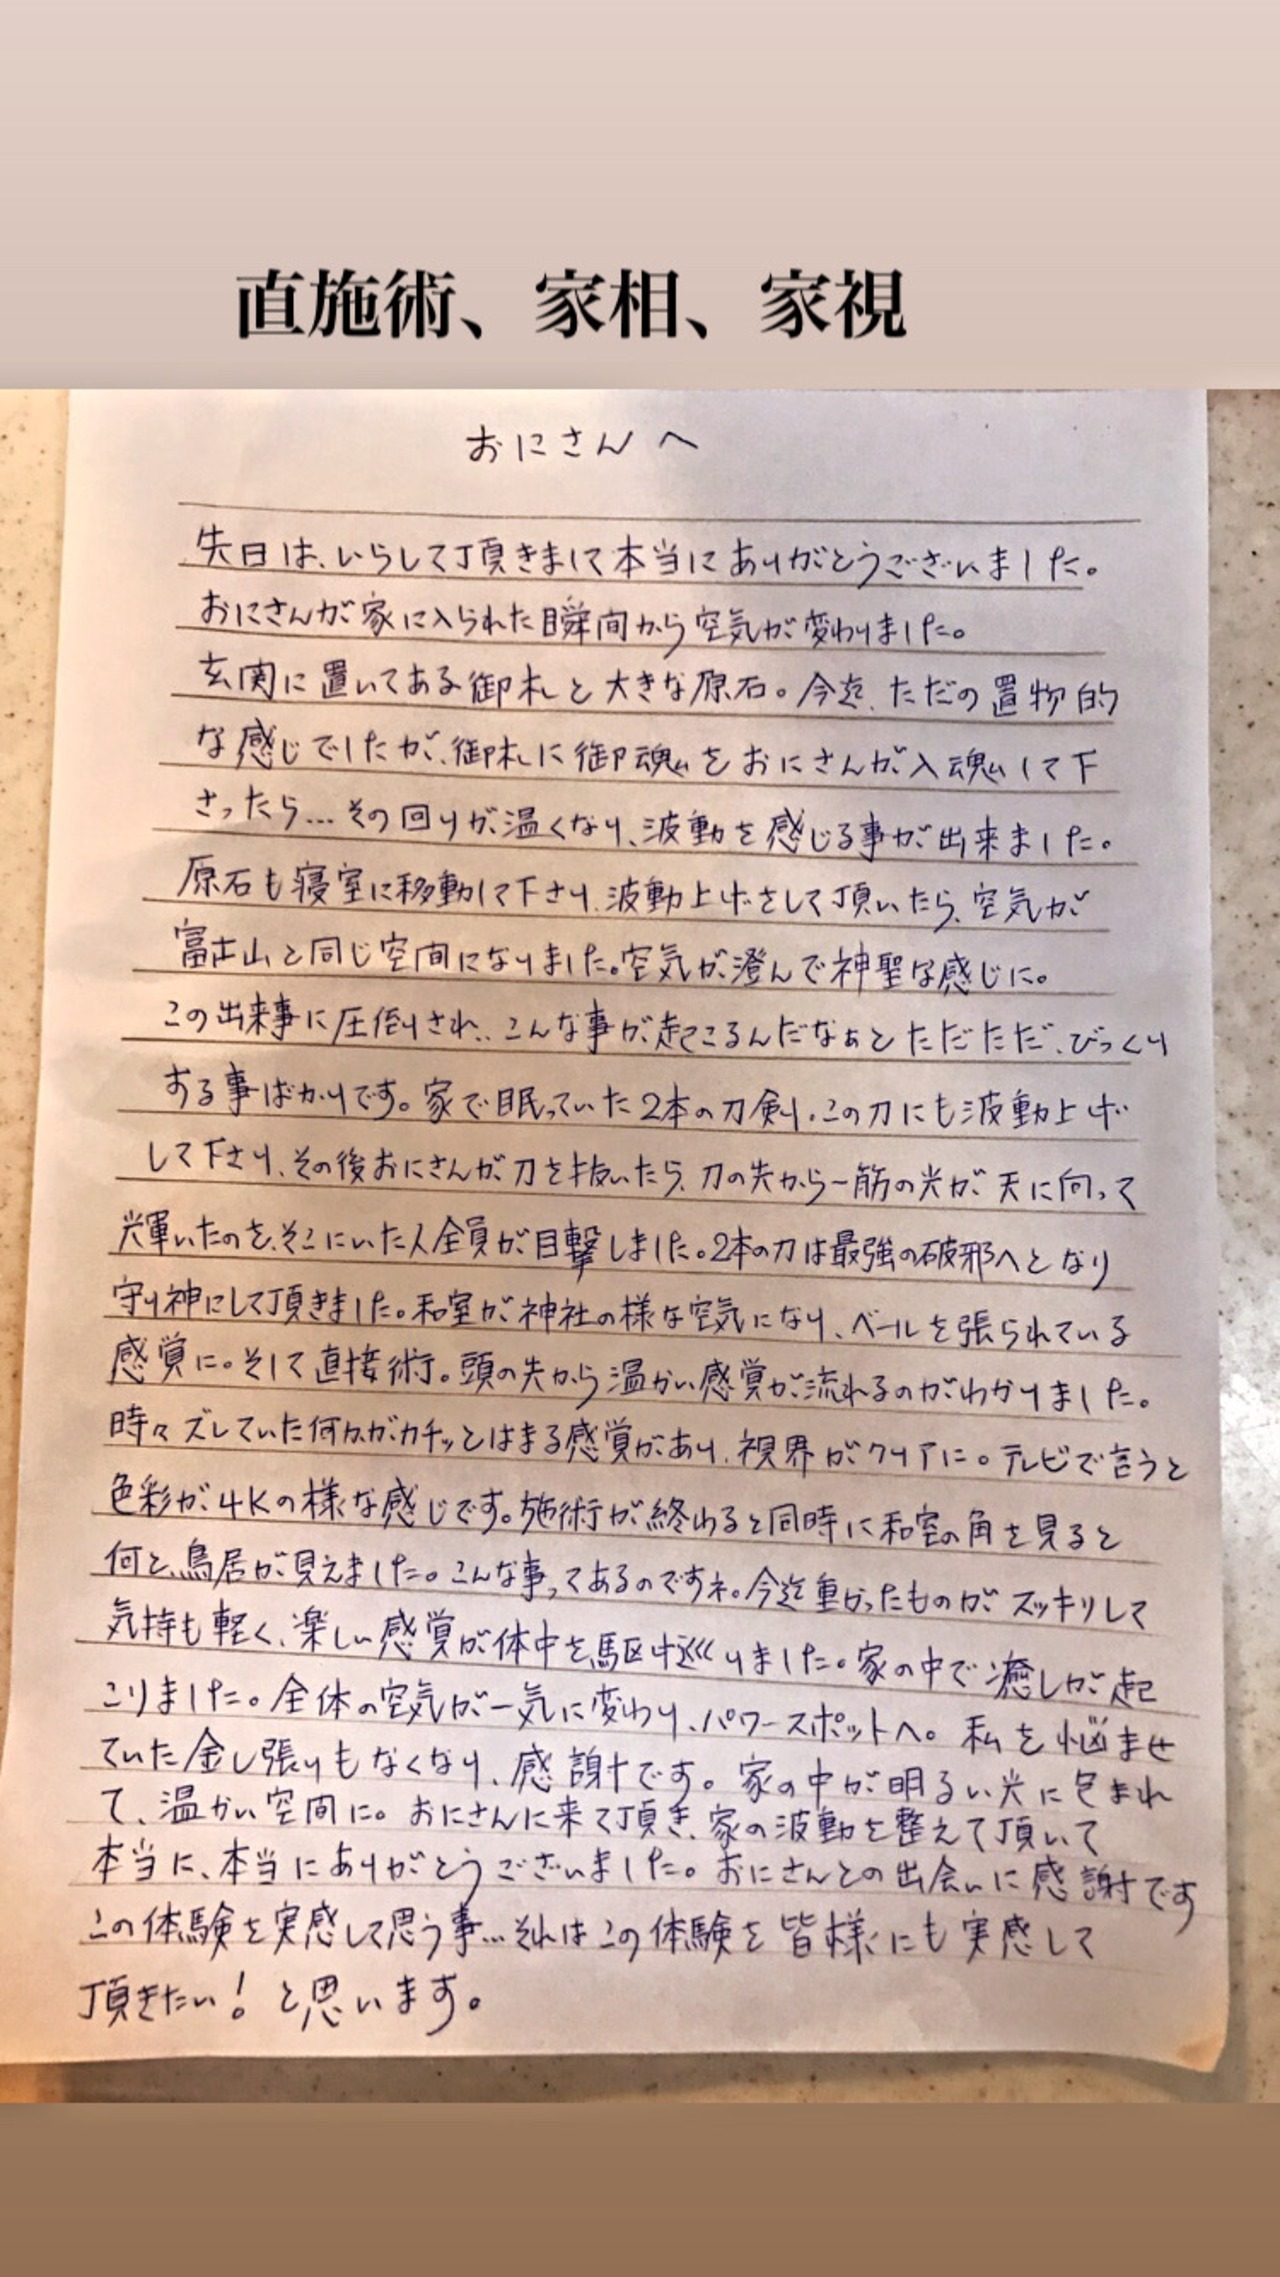 直施術、家相、家視
おにさんへ
先日は、いらして頂きまして本当にありがとうございました。
おにさんが家に入られた瞬間から空気が変わりました。
玄関に置いてある御札と大きな原石。今迄、ただの置物的
な感じでしたが、御札に御魂をおにさんが入魂して下
さったら…その回りが温くなり、波動を感じる事が出来ました。
原石も寝室に移動して下さり、波動上げをして頂いたら、空気が
富士山と同じ空間になりました。空気が澄んで神聖な感じに。
この出来事に圧倒され、こんな事が起こるんだなぁとただただ、びっくり
する事ばかりです。家で眠っていた2本の刀剣、この刀にも波動上げ
して下さり、その後おにさんが刀を抜いたら、刀の先から一筋の光が天に向って
輝いたのを、そこにいた人全員が目撃しました。2本の刀は最強の破邪へとなり
守り神にして頂きました。和室が神社の様な空気になり、ベールを張られている
感覚に。そして直接術。頭の先から温かい感覚が流れるのがわかりました。
時々ズレていた何かがカチッとはまる感覚があり、視界がクリアに。テレビで言うと
色彩が4Kの様な感じです。施術が終わると同時に和室の角を見ると
何と、鳥居が見えました。こんな事ってあるのですネ。今迄重かったものがスッキリして
気持も軽く、楽しい感覚が体中を駆け巡りました。家の中で癒しが起
こりました。全体の空気が一気に変わり、パワースポットへ。私を悩ませ
ていた金し張りもなくなり、感謝です。家の中が明るい光に包まれ
て、温かい空間に。おにさんに来て頂き、家の波動を整えて頂いて
本当に、本当にありがとうございました。おにさんとの出会いに感謝です
この体験を実感して思う事…それはこの体験を皆様にも実感して
頂きたい！と思います。